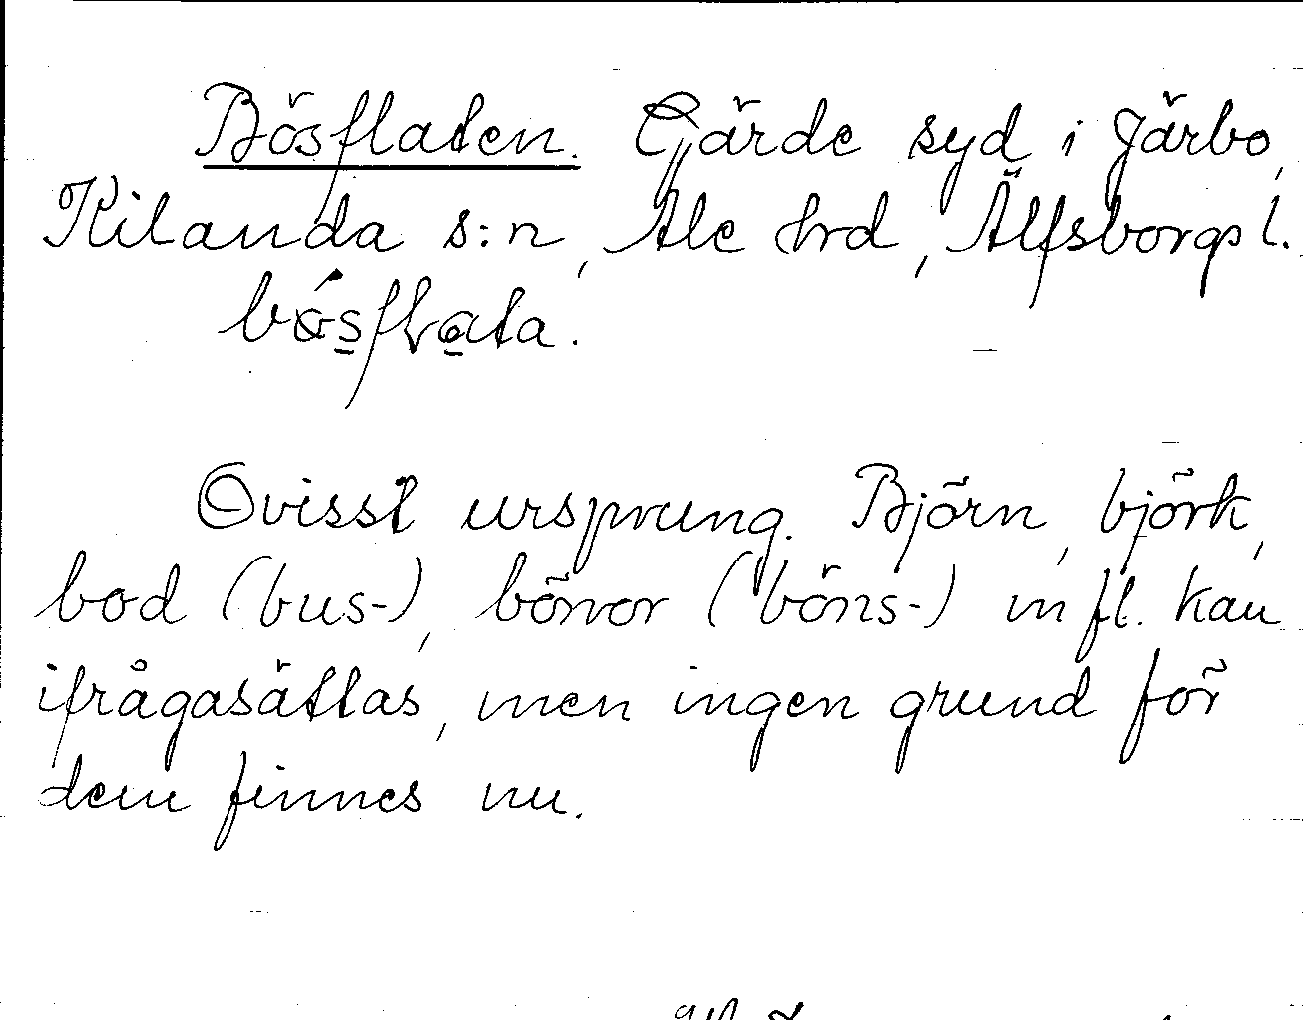 Bösflaten. Gärde syd i Järbo,
Kilanda s:n, Ale hrd, Älfsborgs l.
Ovisst ursprung. Björn, björk,
bod (bus-), bönor (böns-) m fl. kan
ifrågasättas, men ingen grund för
dem finnes nu.